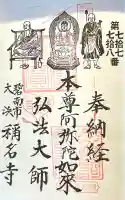 第七拾七番
第七拾八番
奉納経
本尊阿弥陀如来
弘法大師
碧南市
大浜
称名寺